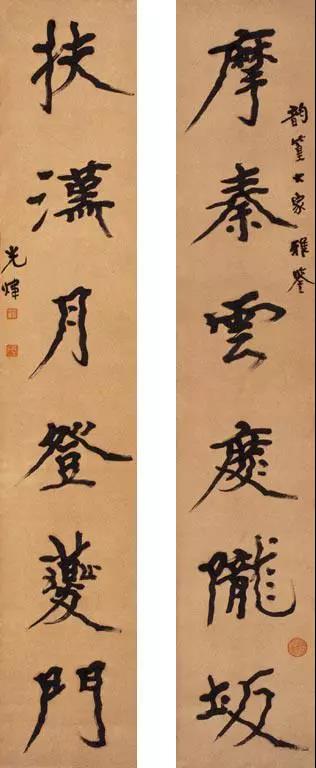 韵篁大家雅鑒
摩秦雲度隴坂
扶漢月登夔門
光煒